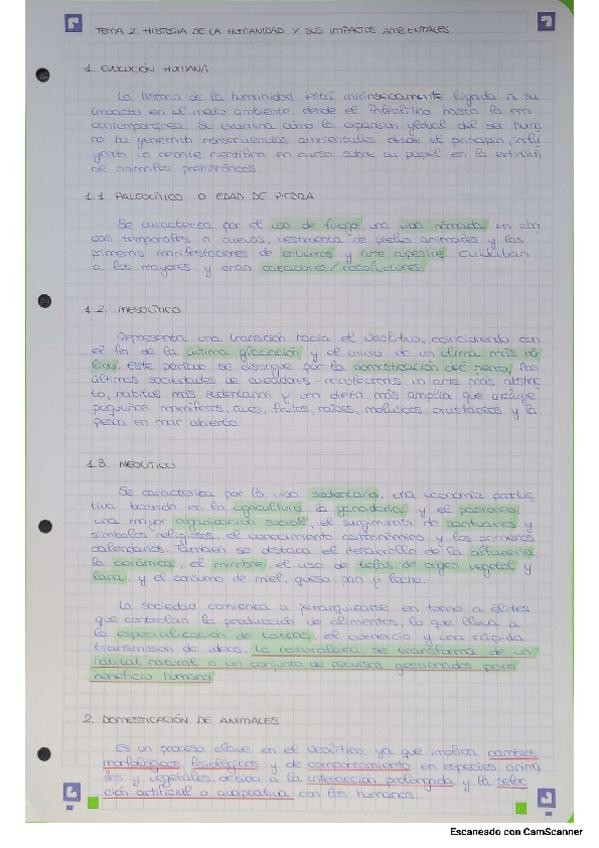 TEMA 2. HISTORIA DE LA HUMANIDAD Y SUS IMPACTOS AMBIENTALES
1. EVOLUCIÓN HUMANA
La historia de la humanidad está intrínsecamente ligada a su
impacto en el medio ambiente, desde el Paleolítico hasta la era
contemporánea. Se examina cómo la expansión global del ser huma
no ha generado consecuencias ambientales desde el principio, inclu
yendo un debate científico en curso sobre su papel en la extinción
de animales prehistóricos.
1.1 PALEOLÍTICO O EDAD DE PIEDRA
Se caracteriza por el uso de fuego, una vida nómada en cho
zas temporales o cuevas, vestimenta de pieles animales y las
primeras manifestaciones de entierros y arte rupestre. Cuidaban
a los mayores y eran cazadores/recolectores.
1.2. MESOLÍTICO
Representa una transición hacia el Neolítico, coincidiendo con
el fin de la última glaciación y el inicio de un clima más cá
lido. Este período se distingue por la domesticación del perro, las
últimas sociedades de cazadores-recolectores, un arte más abstrac
to, hábitos más sedentarios y una dieta más amplia que incluye
pequeños mamíferos, aves, frutos, raíces, moluscos, crustáceos y la
pesca en mar abierto.
1.3. NEOLÍTICO
Se caracteriza por la vida sedentaria, una economía produc
tiva basada en la agricultura, la ganadería y el pastoreo,
una mayor organización social, el surgimiento de santuarios y
símbolos religiosos, el conocimiento astronómico y los primeros
calendarios. También se destaca el desarrollo de la alfarería,
la cerámica, el mimbre, el uso de telas de origen vegetal y
lana, y el consumo de miel, queso, pan y leche.
La sociedad comienza a jerarquizarse en torno a élites
que controlan la producción de alimentos, lo que lleva a
la especialización de tareas, el comercio y una rápida
transmisión de ideas. La naturaleza se transforma de un
hábitat natural a un conjunto de recursos gestionados para
beneficio humano
2. DOMESTICACIÓN DE ANIMALES
Es un proceso clave en el Neolítico ya que implica cambios
morfológicos, fisiológicos y de comportamiento en especies anima
les y vegetales, debido a la interacción prolongada y la selec
ción artificial o adaptativa con los humanos.
Escaneado con CamScanner